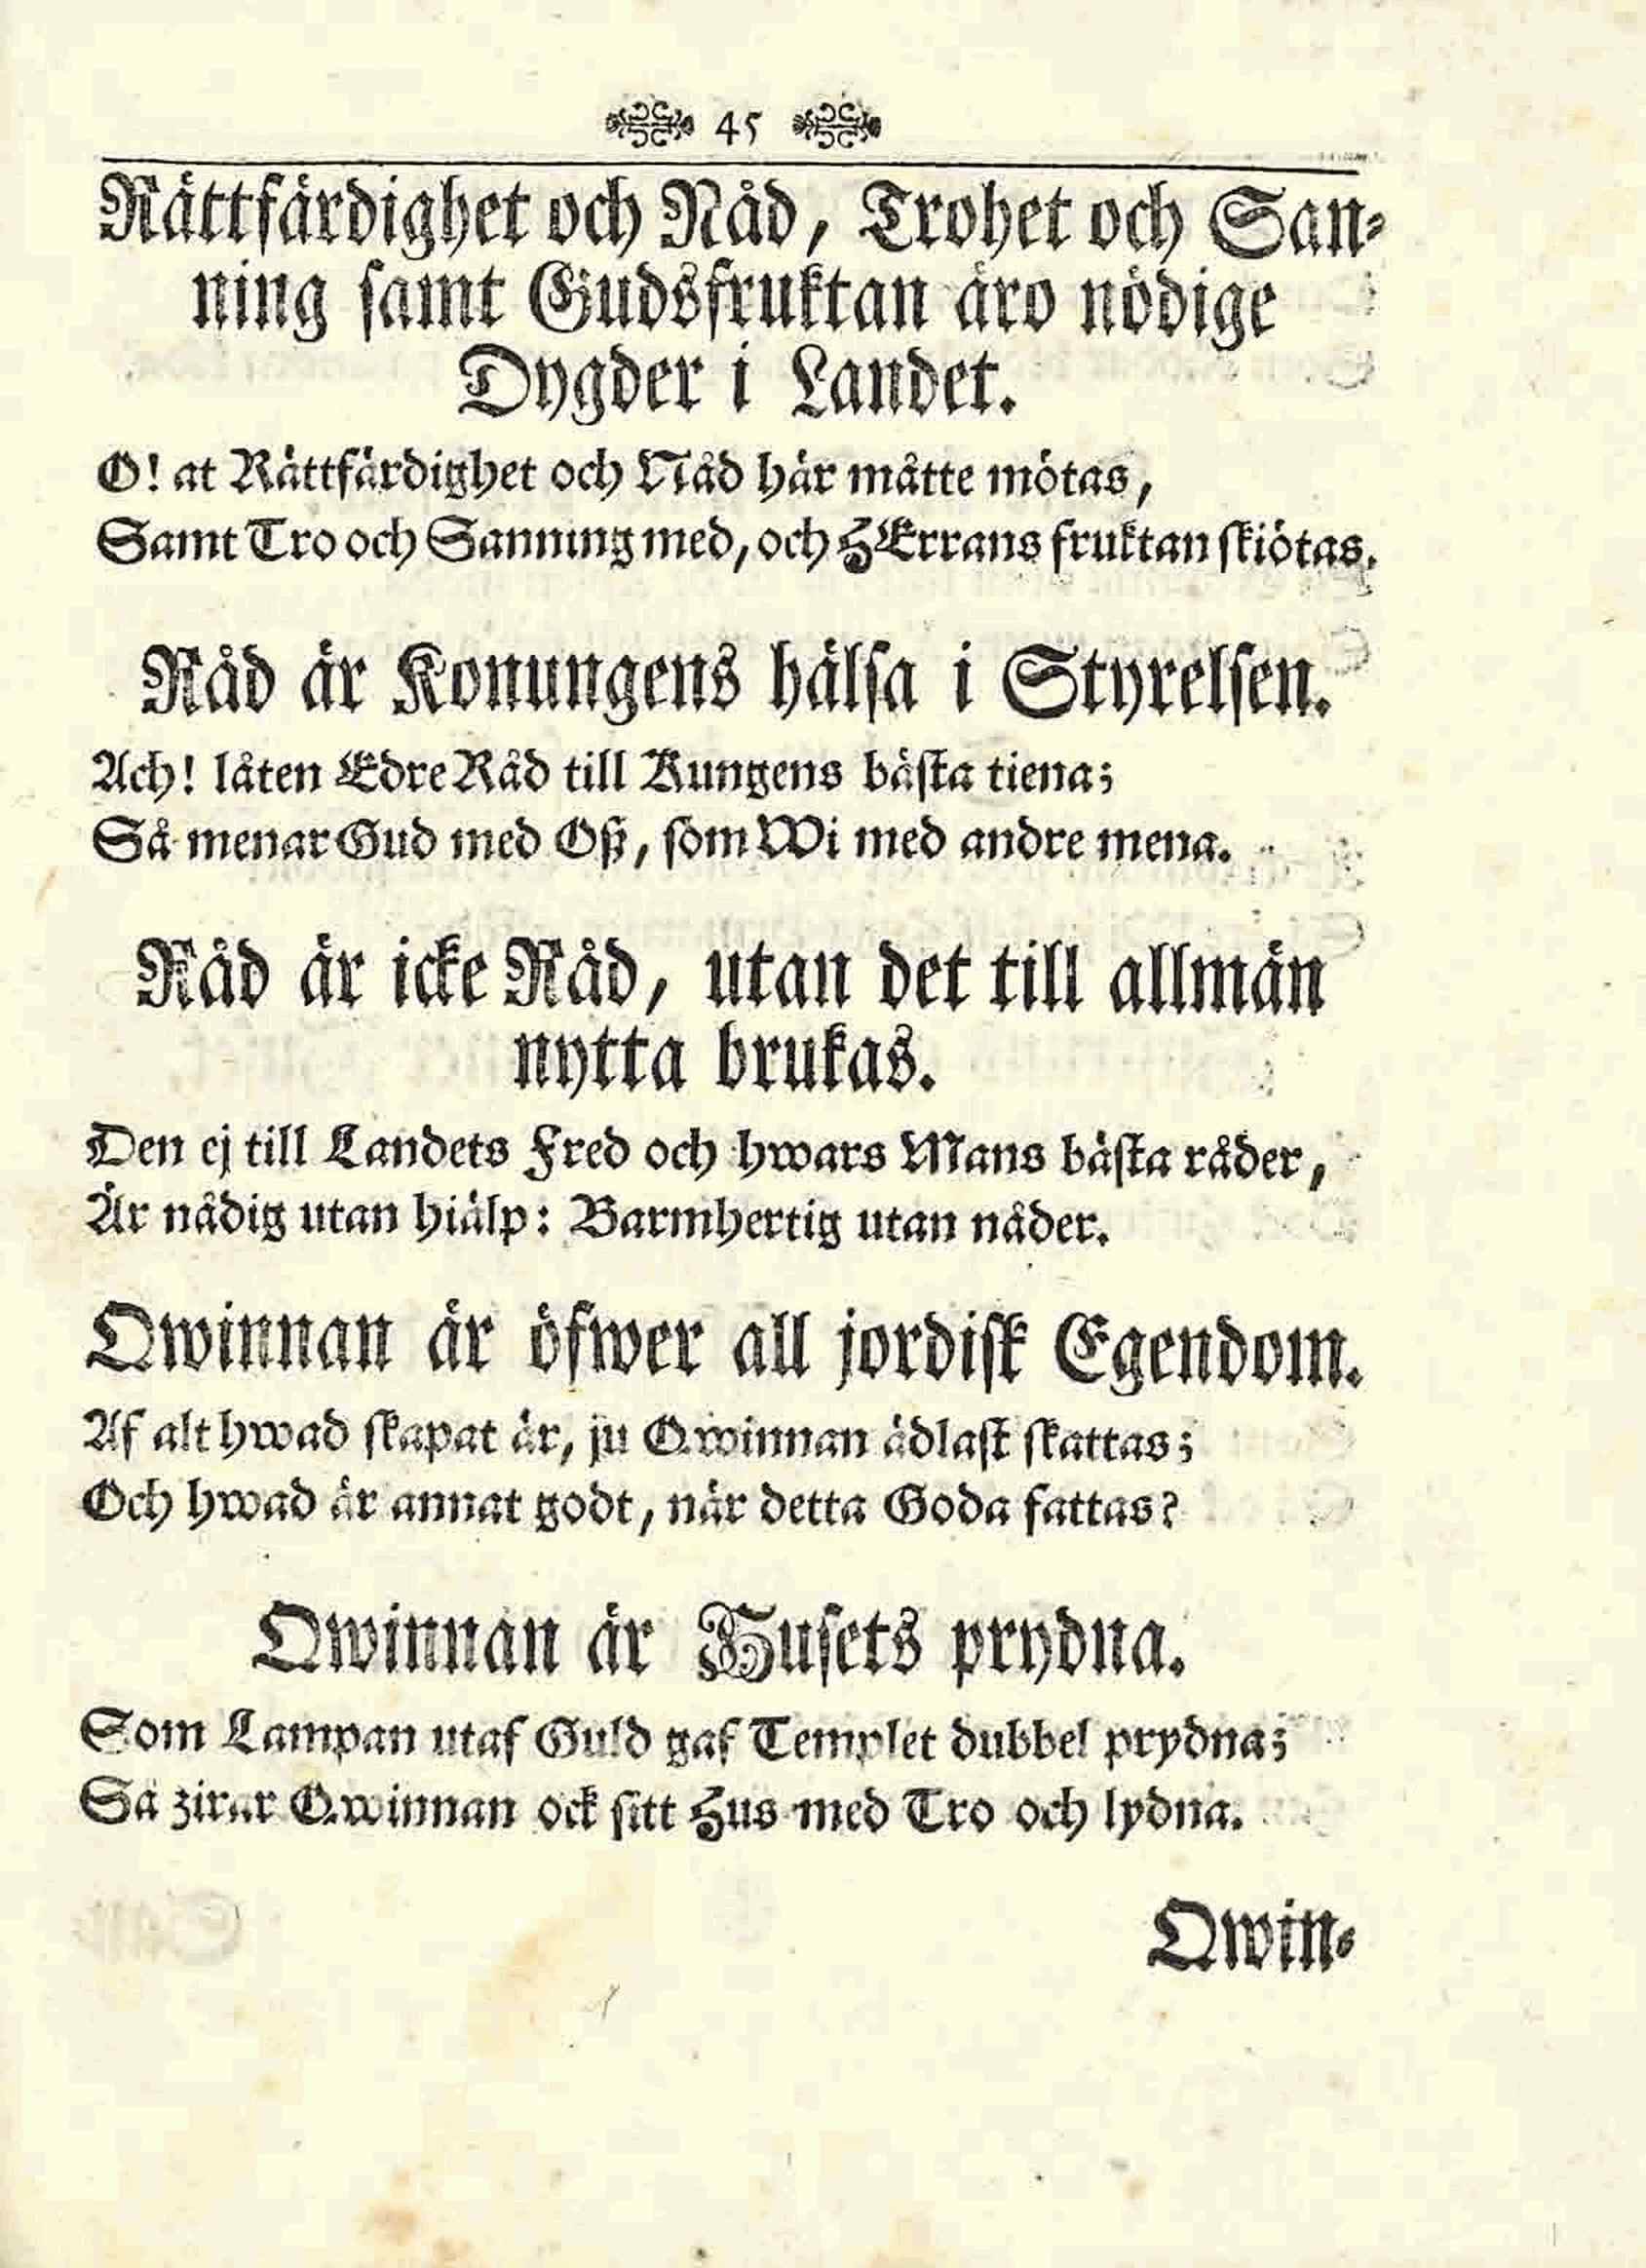 45
Rättfärdighet och Nåd, Trohet och San-
ning samt Gudsfruktan äro nödige
Dygder i Landet.
O! at Rättfärdighet och Nåd här måtte mötas,
Samt Tro och Sanning med, och HErrans fruktan skiötas.
Råd är Konungens hälsa i Styrelsen.
Ach! låten Edre Råd till Kungens bästa tiena;
Så menar Gud med Oß, som Wi med andre mena.
Råd är icke Råd, utan det till allmän
nytta brukas.
Den ej till Landets Fred och hwars Mans bästa råder,
Är nådig utan hiälp: Barmhertig utan nåder.
Qwinnan är öfwer all jordisk Egendom.
Af alt hwad skapat är, ju Qwinnan ädlast skattas;
Och hwad är annat godt, när detta Goda fattas?
Qwinnan är Husets prydna.
Som Lampan utaf Guld gaf Templet dubbel prydna;
Så zirar Qwinnan ock sitt Hus med Tro och lydna.
Qwin-